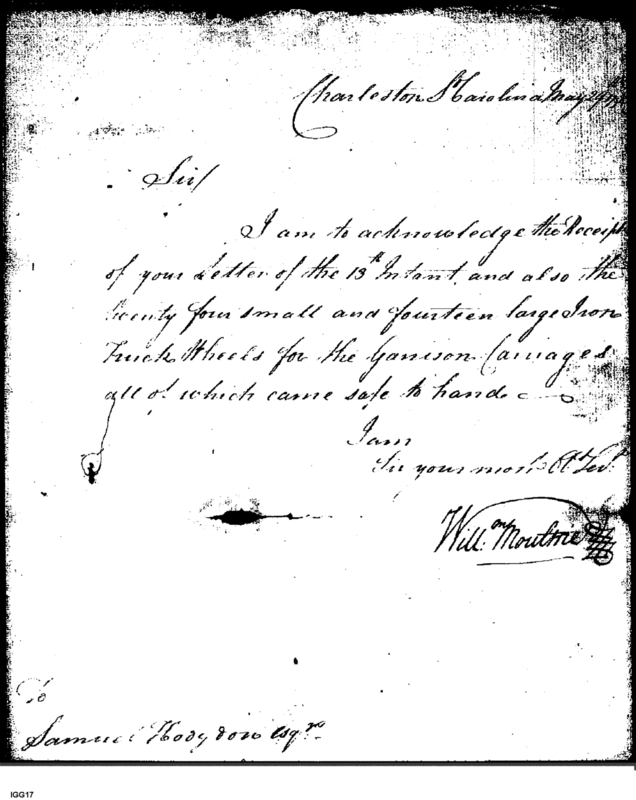 Charleston So Carolina May 29th
Sir/
I am to acknowledge the Receipt
of your Letter of the 13th Intant, and also the
twenty four small and fourteen large Iron
Truck Wheels for the Garrison Carriages
all of which came safe to hand
I am
Sir your most Ot Sert
Willm Moultrie
To
Samuel Hodgdon Esqre
IGG17